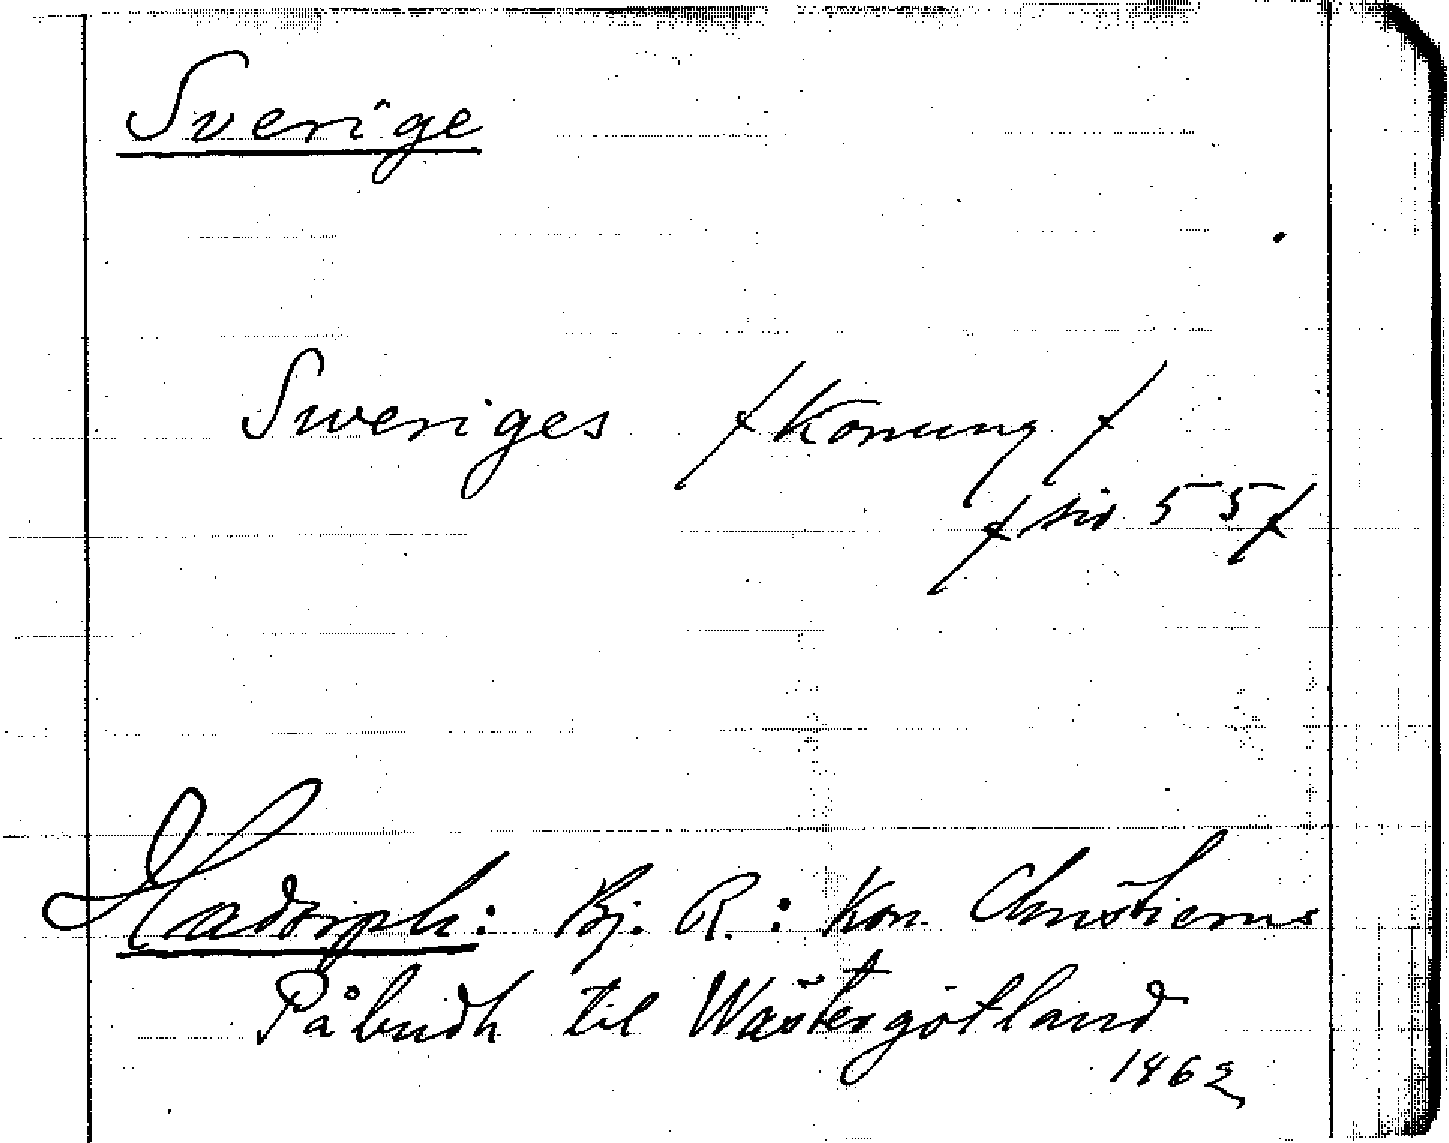 Sverige
Sweriges /Konung/
/sid 55/
Hadorph: Bj. R.: Kon. Christierns
Påbudh til Wästergötland
1462